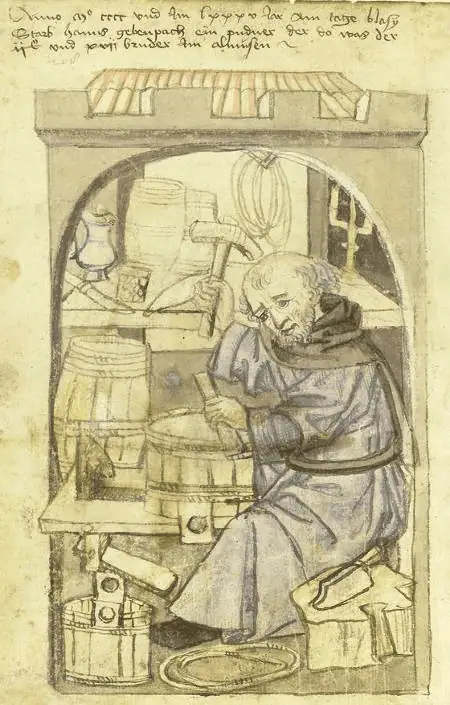 Anno m° cccc vnd Im lxxxv Jar Am tage blasy
Starb hanns gebenpach ein pudner der do was der
ijc vnd xvij bruder Im almusen